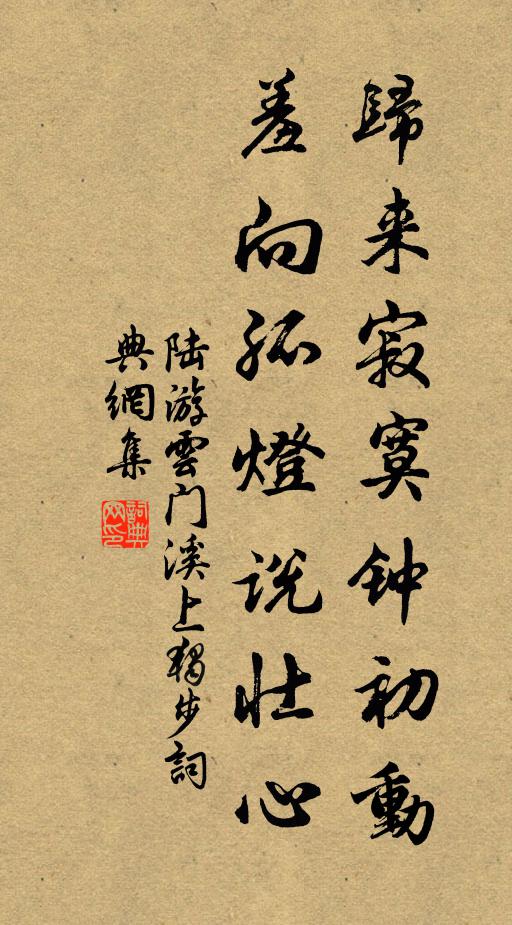 歸来寂寞钟初動
羞向孤燈说壮心
陆游雲门溪上獨步詞
典網集
詞典网印